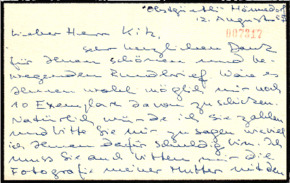 Obstgärtli Männedorf
12. August 68
007317
Lieber Herr Kitz,
sehr herzlichen Dank
für Ihren schönen und be-
wegenden Rundbrief. Wäre es
Ihnen wohl möglich mir noch
10 Exemplare davon zu schicken.
Natürlich würde ich Sie zahlen
und bitte Sie mir zu sagen wieviel
ich Ihnen dafür schuldig bin. Ich
muss Sie auch bitten mir die
Fotografie meiner Mutter mit den